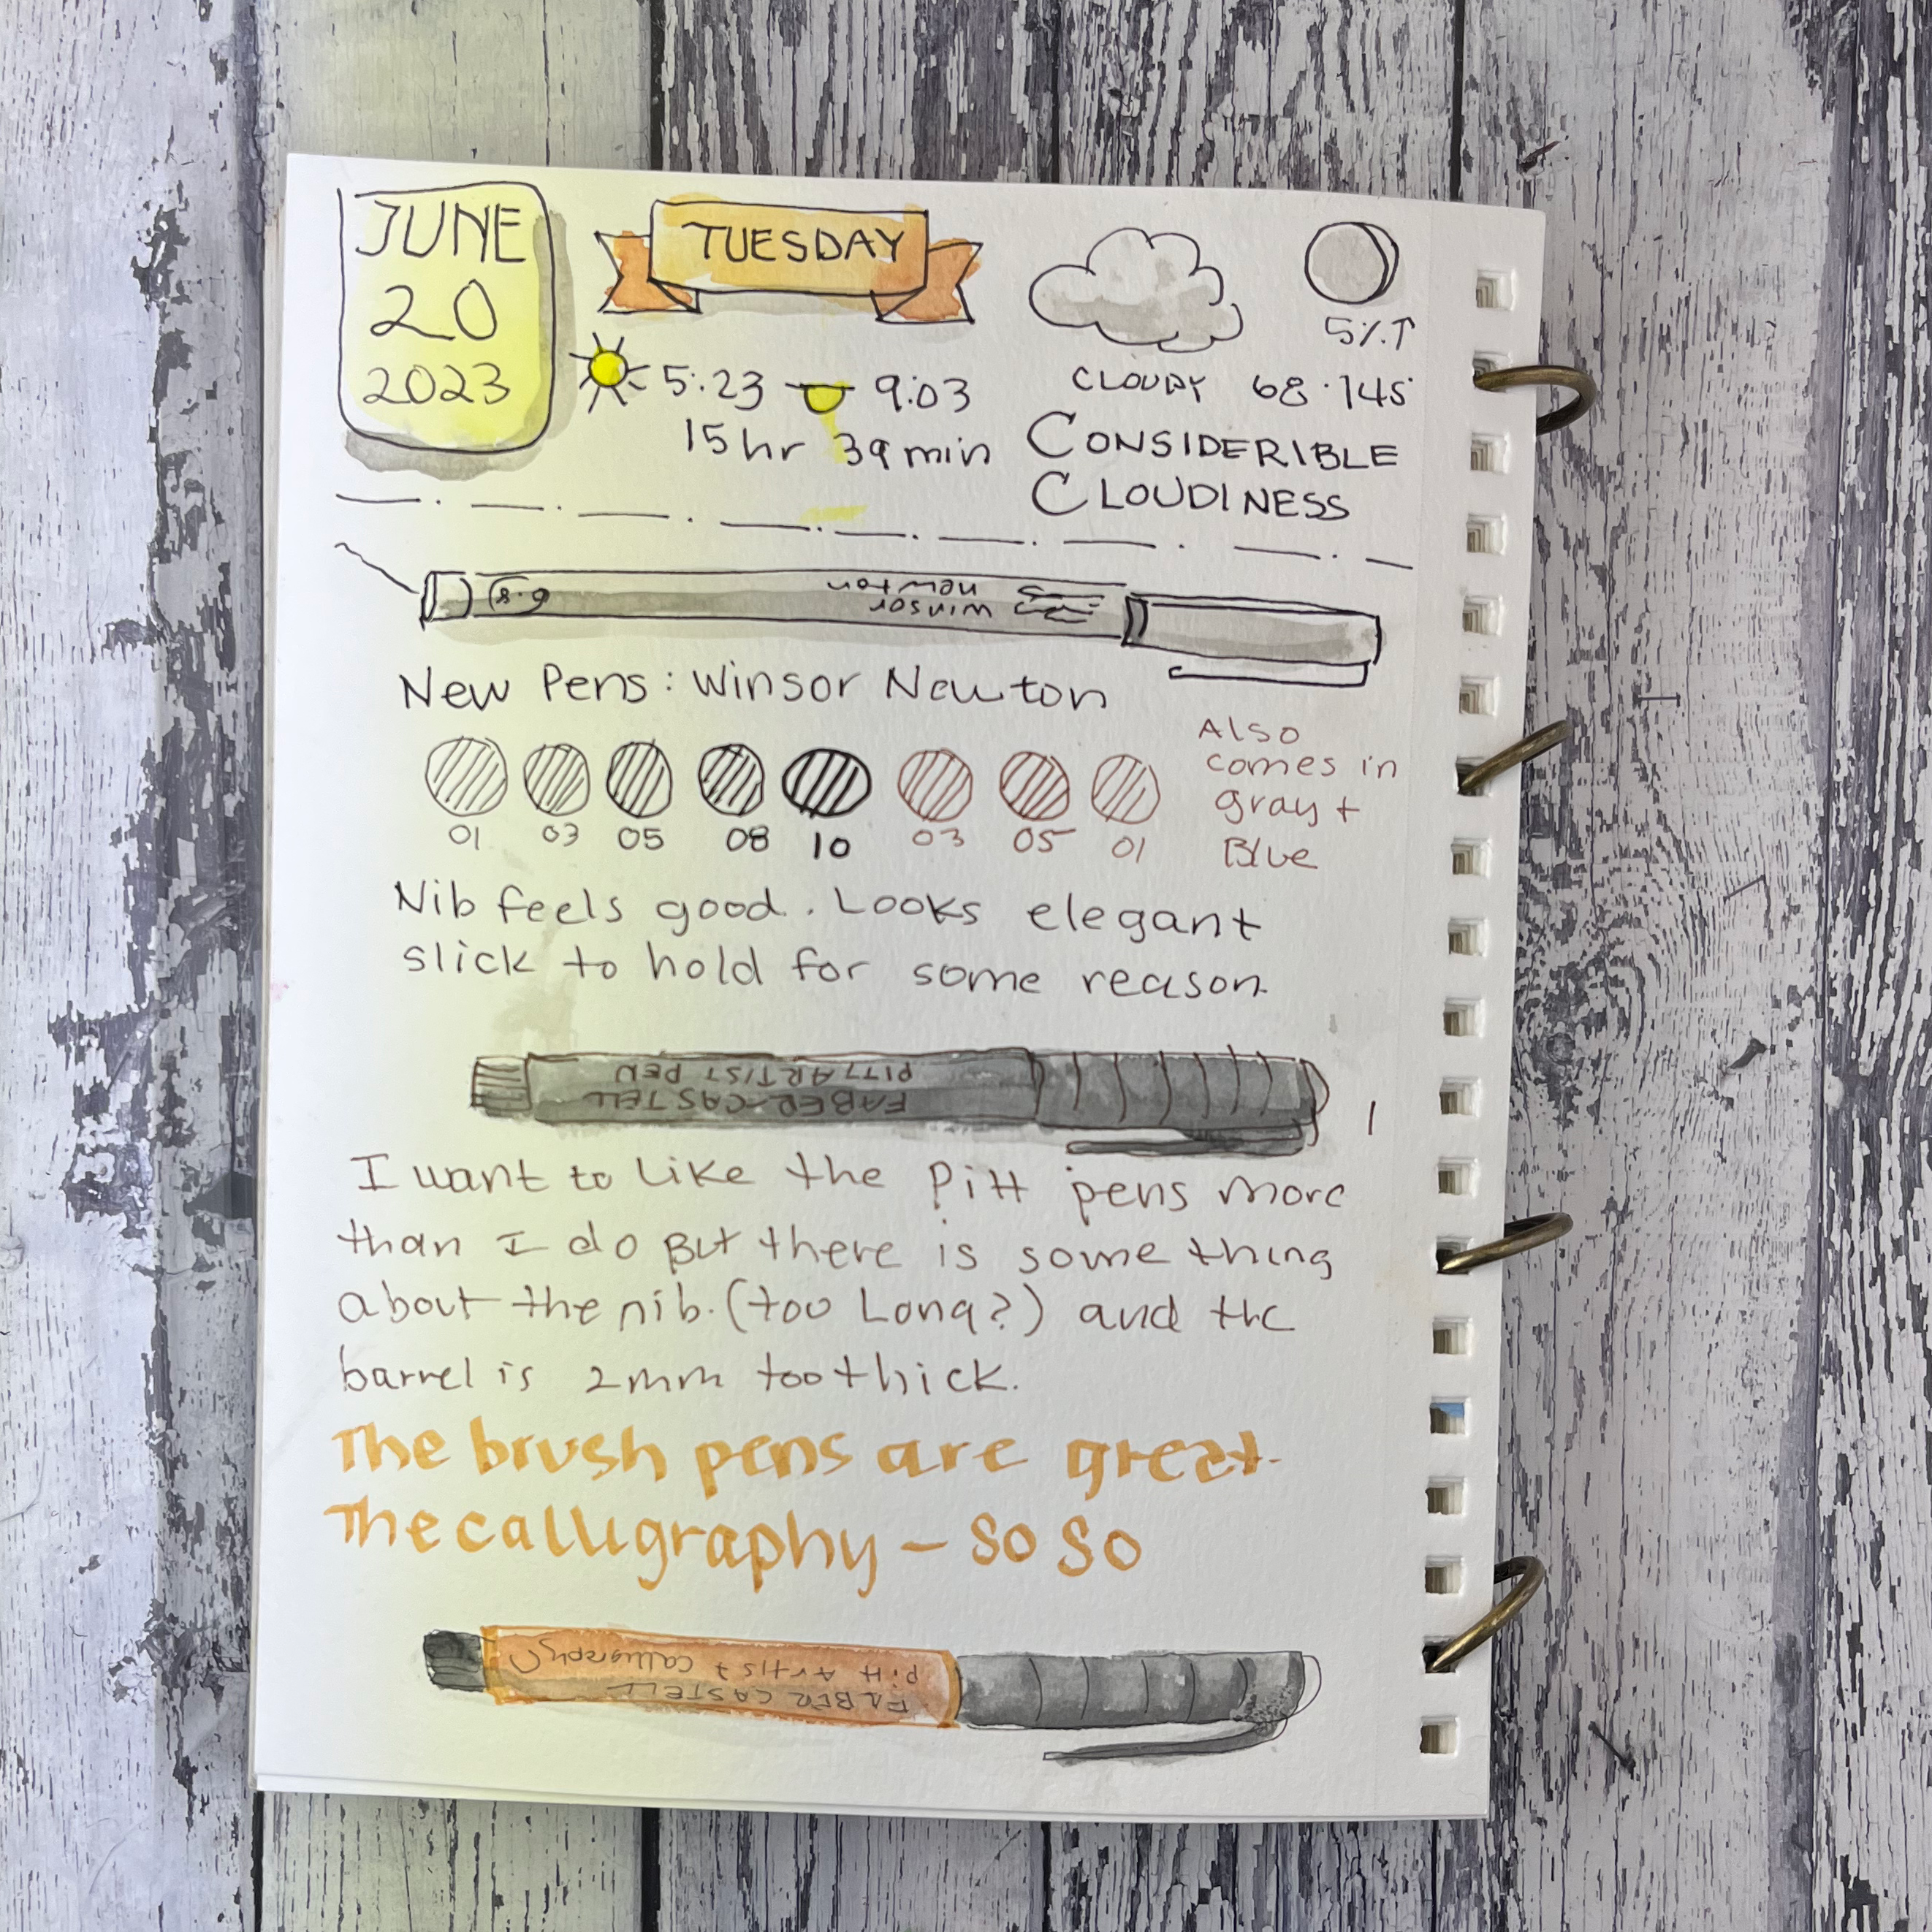 JUNE
20
2023
TUESDAY
5:23 9:03
15hr 39min
5%↑
CLOUDY 68·145
CONSIDERIBLE
CLOUDINESS
0.8
winsor
newton
New Pens: Winsor Newton
01 03 05 08 10 03 05 01
Also
comes in
gray +
Blue
Nib feels good. Looks elegant
slick to hold for some reason.
FABER-CASTELL
PITT ARTIST PEN
I want to like the Pitt pens more
than I do But there is some thing
about the nib. (too Long?) and the
barrel is 2mm too thick.
The brush pens are great.
The calligraphy - so so
FABER CASTELL
Pitt Artist Calligraphy C